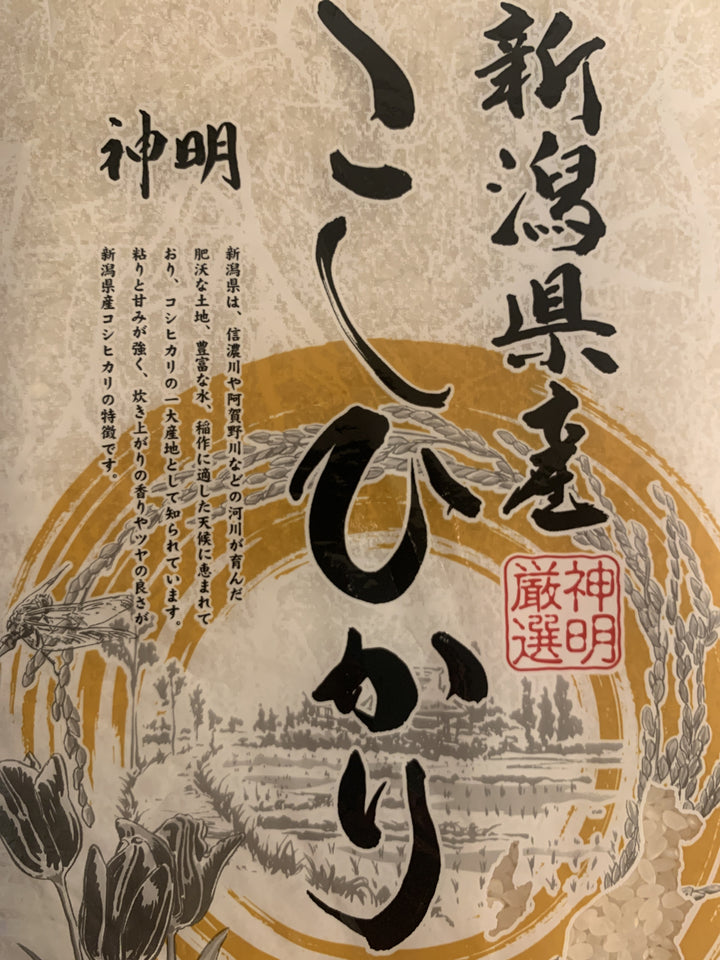 新潟県産
こしひかり
神明
新潟県は、信濃川や阿賀野川などの河川が育んだ
肥沃な土地、豊富な水、稲作に適した天候に恵まれて
おり、コシヒカリの一大産地として知られています。
粘りと甘みが強く、炊き上がりの香りやツヤの良さが
新潟県産コシヒカリの特徴です。
神明
厳選